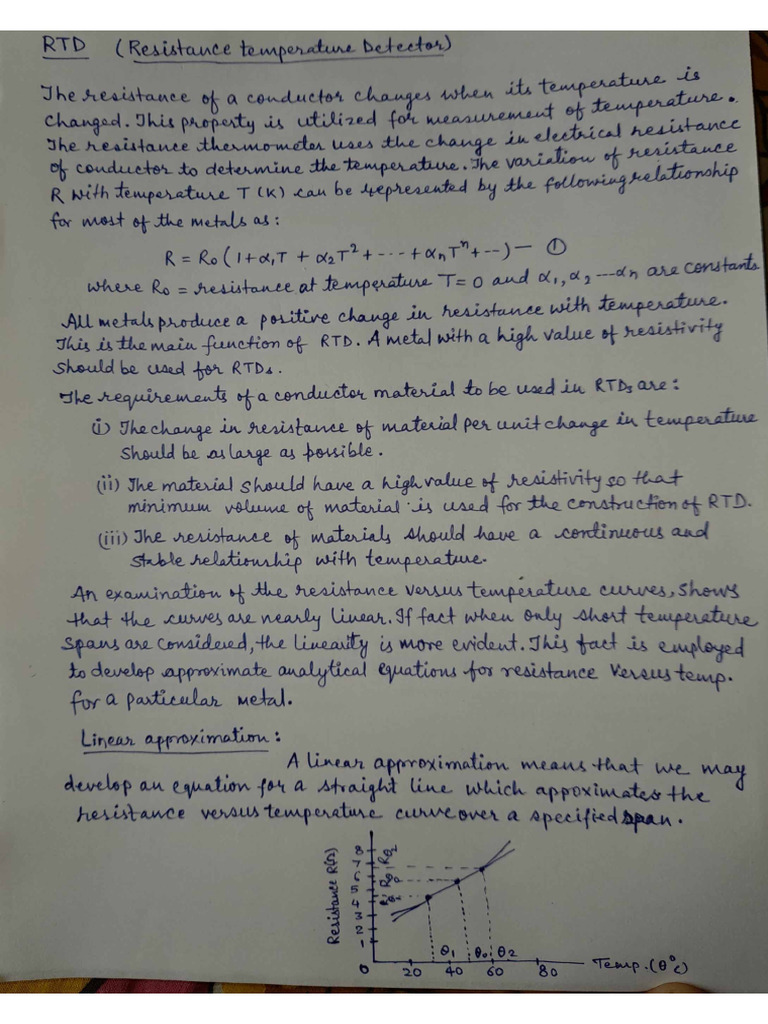 RTD (Resistance temperature Detector)
The resistance of a conductor changes when its temperature is
changed. This property is utilized for measurement of temperature.
The resistance thermometer uses the change in electrical resistance
of conductor to determine the temperature. The variation of resistance
R with temperature T (K) can be represented by the following relationship
for most of the metals as:
R = R₀ (1+α₁T + α₂T² + ---- + αₙTⁿ + --) — ①
where R₀ = resistance at temperature T=0 and α₁, α₂ ---αₙ are constants
All metals produce a positive change in resistance with temperature.
This is the main function of RTD. A metal with a high value of resistivity
should be used for RTDs.
The requirements of a conductor material to be used in RTDs are:
(i) The change in resistance of material per unit change in temperature
should be as large as possible.
(ii) The material should have a high value of resistivity so that
minimum volume of material is used for the construction of RTD.
(iii) The resistance of materials should have a continuous and
stable relationship with temperature.
An examination of the resistance versus temperature curves, shows
that the curves are nearly linear. If fact when only short temperature
spans are considered, the linearity is more evident. This fact is employed
to develop approximate analytical equations for resistance versus temp.
for a particular metal.
Linear approximation:
A linear approximation means that we may
develop an equation for a straight line which appoximates the
resistance versus temperature curve over a specified span.
Resistance R(Ω)
8
7
6
5
4
3
2
1
0
Rθ₂
Rθ₀
Rθ₁
θ₁ θ₀ θ₂
20 40 60 80 Temp. (θ°c)